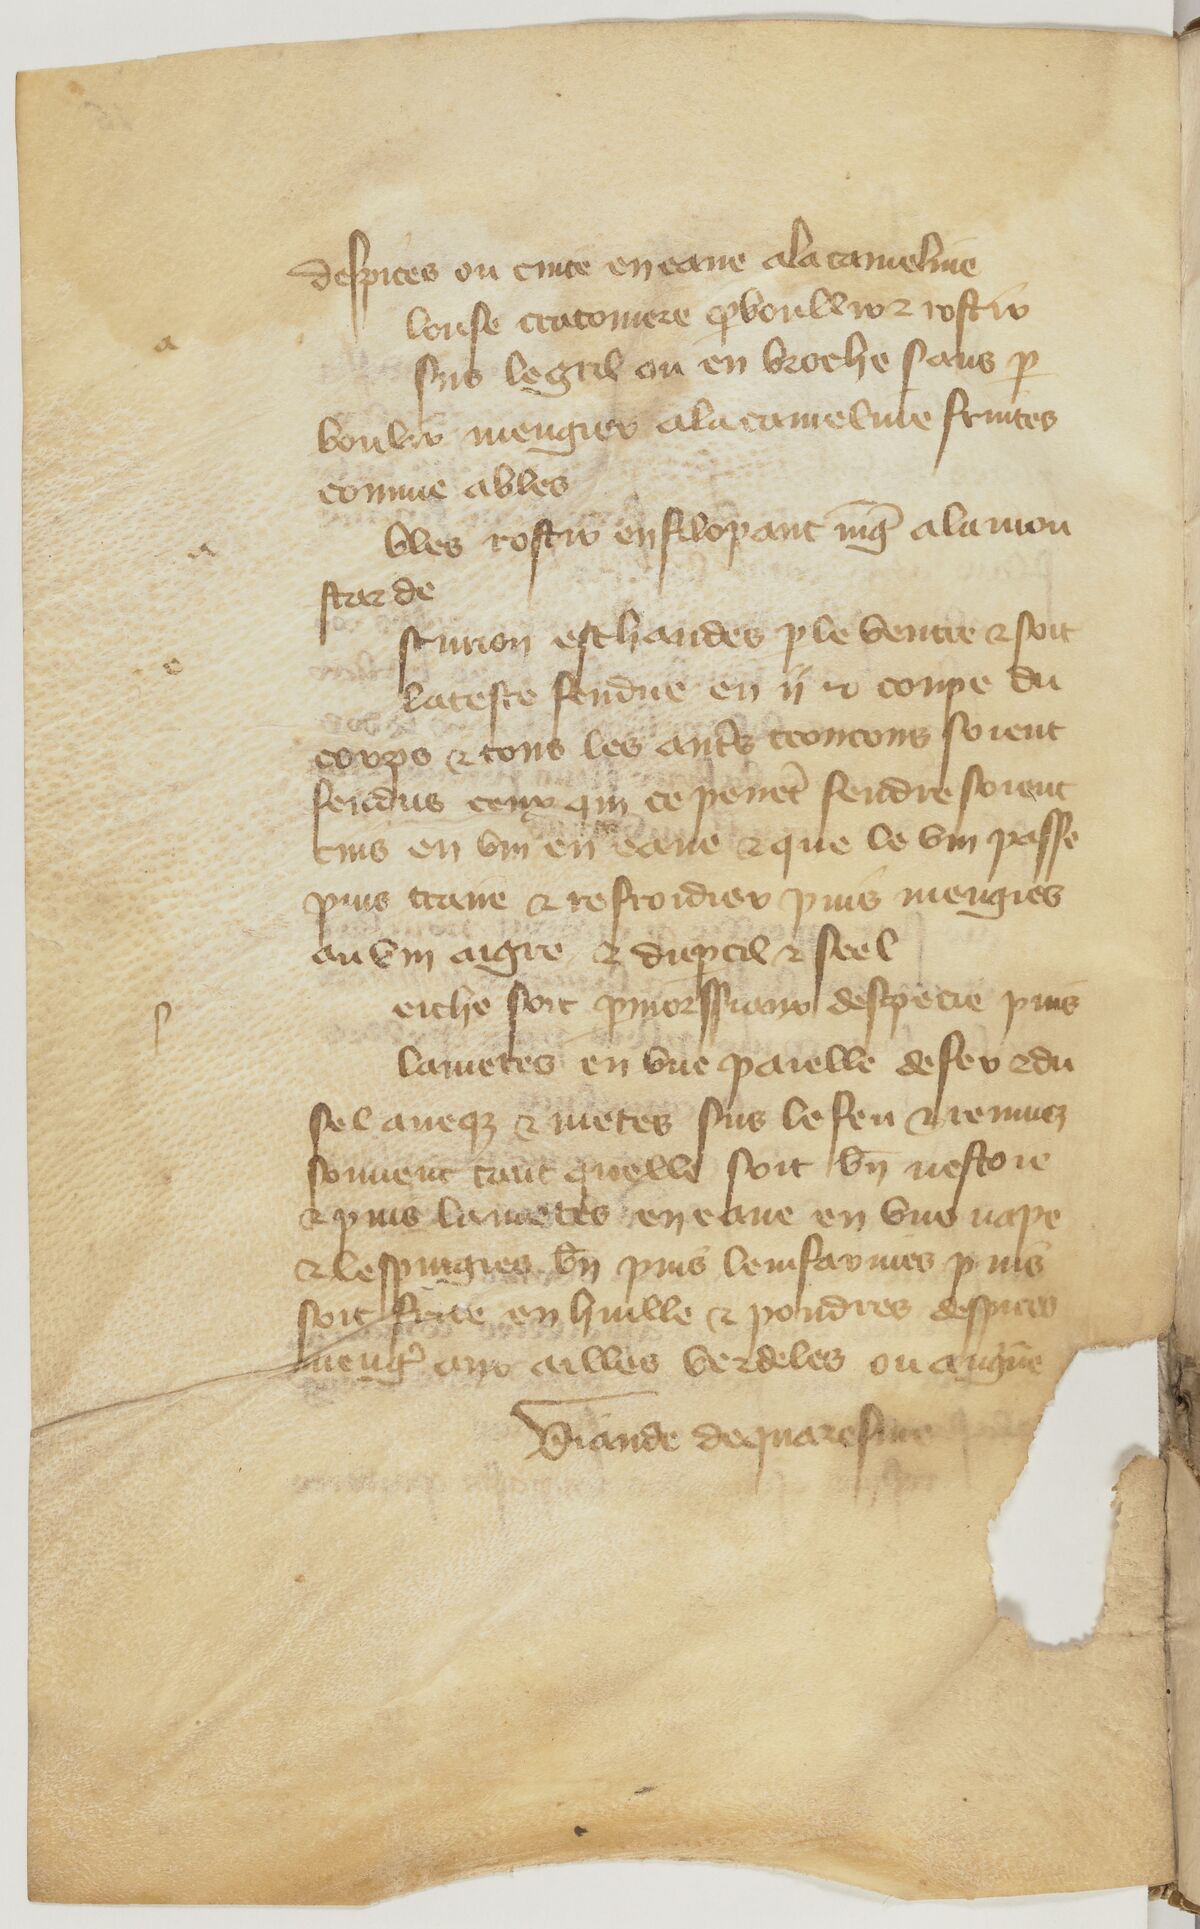 despices ou cuite en eaue ala cameline
a
louse cratoniere pboullir & rostir
sus le gril ou en broche sans p
boulir mengier ala cameline fruites
comme ables
a
bles rostir en filopant mg ala mou
starde
e
sturion eschaudes p le ventre & soit
la teste fendue en ii & coupe du
corps & tous les autrs troncons soient
fendus ceux qui ce peuet fendre soient
cuis en vin en eaue & que le vin passe
puis traire & refroidier puis mengies
au vin aigre & du pcil & seel
s
eiche soit p morssiaux despecie puis
la metes en vne paielle de fer & du
sel auecqz & metes sus le feu & remuez
souuent tant quelle soit bn nestoie
& puis la metes en eaue en vne nape
& lespurgies bn puis lenfarines puis
soit frite en huille & poudres despices
meng aux ailles verdeles ou
Viande de quaresme